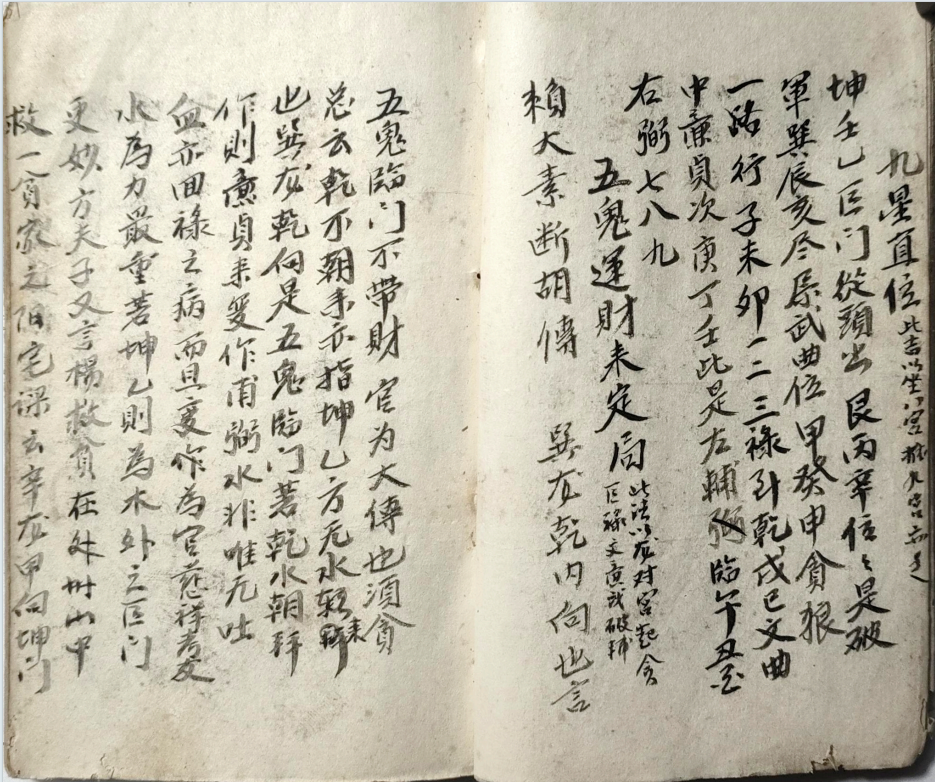 九星直位 此吉以坐八宮
坤壬乙巨门從頭出艮丙辛位々是破
軍巽辰亥尽是武曲位甲癸申貪狼
一路行子未卯一二三祿到乾戌巳文曲
中廉貞次庚丁壬此是左輔弼臨午丑
右弼七八九
五鬼運財未定局 此法以龙对宮起貪巨祿文廉武破輔
賴大素断胡傳 巽龙乾内向也言
五鬼臨门不帶財 官为大傳也須貪
总云乾不朝来亦指坤乙方无水朝来
也巽龙乾向是五鬼臨门若乾水朝拜
作則廉貞来変作甫弼水非唯无吐
血亦回祿之病而且変作為官慈祥者交
水為力最重若坤乙則為水外之巨门
更妙方夫子又言楊救貧在处州山中
救一貧家之阳宅課云辛龙甲向坤门